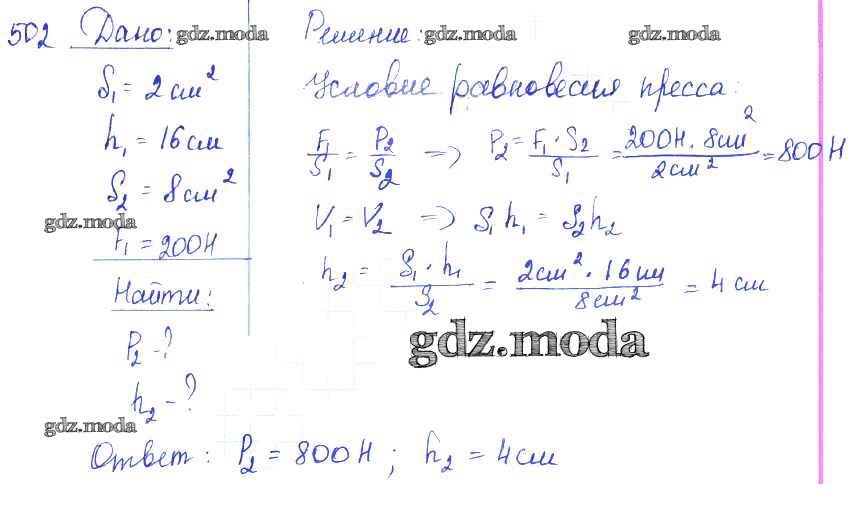 502 Дано: gdz.moda
S₁ = 2 см²
h₁ = 16 см
S₂ = 8 см²
gdz.moda
F₁ = 200Н
Найти:
P₂ - ?
h₂ - ?
gdz.moda
Решение: gdz.moda gdz.moda
Условие равновесия пресса:
F₁/S₁ = P₂/S₂ => P₂ = F₁·S₂/S₁ = 200Н·8см²/2см² = 800Н
V₁ = V₂ => S₁h₁ = S₂h₂
h₂ = S₁·h₁/S₂ = 2см²·16см/8см² = 4 см
gdz.moda
Ответ: P₂ = 800Н; h₂ = 4см